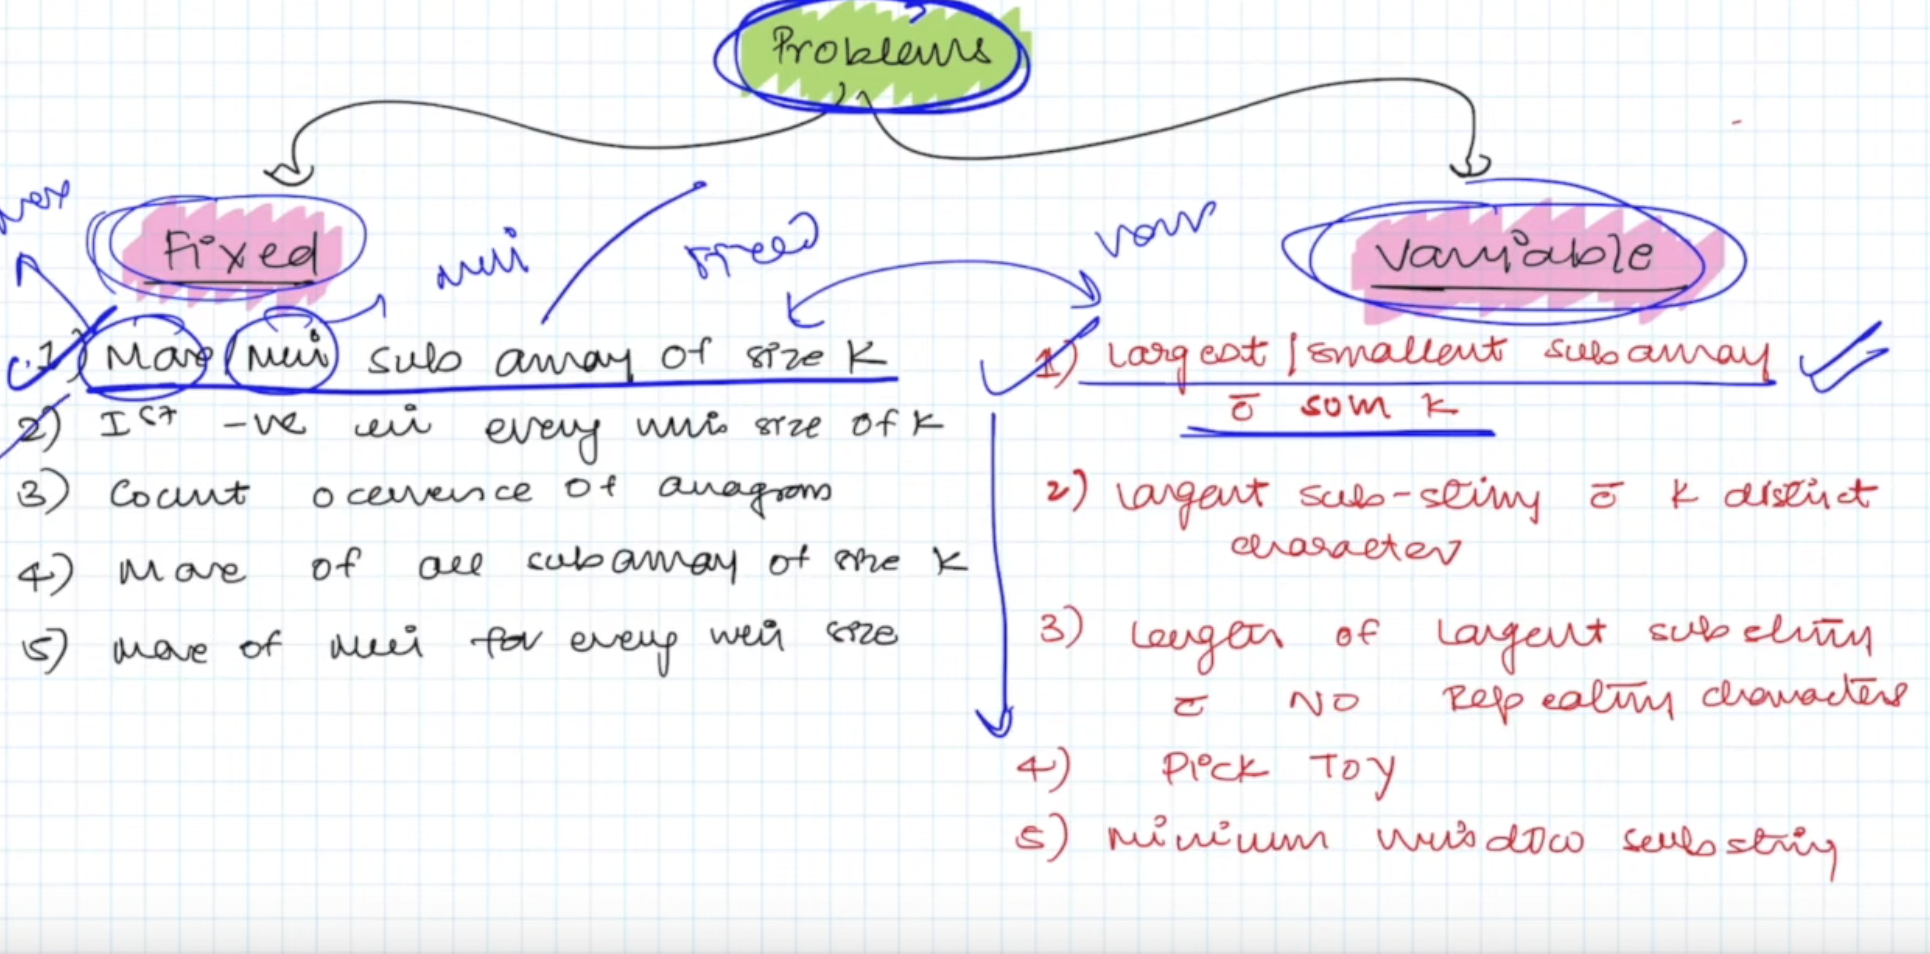 Problems
Fixed
Variable
max
min
fixed
var
1) Max / Min sub array of size K
2) Ist -ve in every win size of K
3) Count occurence of anagram
4) Max of all subarray of size K
5) Max of Min for every win size
1) Largest / smallest subarray
c̄ sum K
2) Largest sub-string c̄ K distinct
character
3) Length of largest substring
c̄ NO Repeating characters
4) Pick TOY
5) Minimum window substring